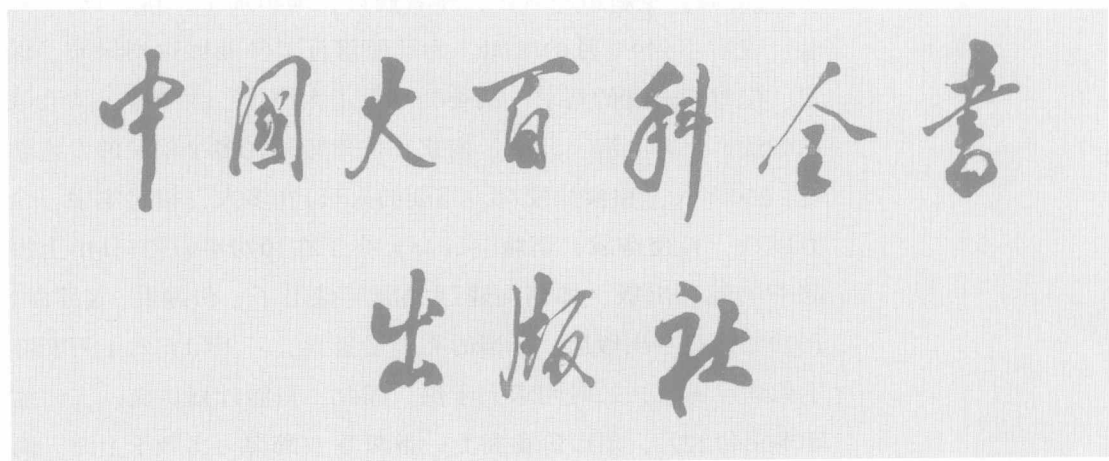 中國大百科全书
出版社